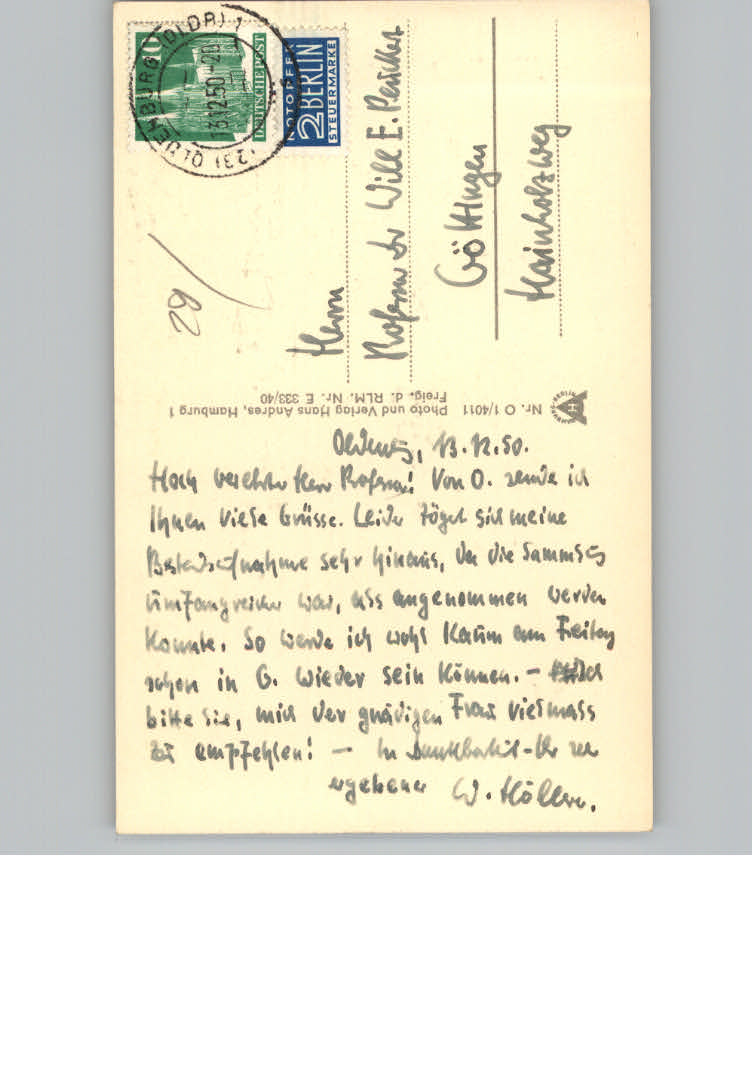 (23) OLDENBURG (OLDB) 1
13.12.50-20
10
DEUTSCHE POST
NOTOPFER
2 BERLIN
STEUERMARKE
29/
Herrn
Professor Dr Will E. Peuckert
Göttingen
Hainholzweg
Nr. O 1/4011 Photo und Verlag Hans Andres, Hamburg 1
Freig. d. RLM. Nr. E 333/40
Oldenbg, 13.12.50.
Hoch verehrter Herr Professor! Von O. sende ich
Ihnen viele Grüsse. Leider zögert sich meine
Bestandsaufnahme sehr hinaus, da die Sammlg
umfangreicher war, als angenommen werden
konnte. So werde ich wohl kaum am Freitag
schon in G. wieder sein können. – Ich
bitte Sie, mich der gnädigen Frau vielmals
zu empfehlen! — In Dankbarkeit – Ihr sehr
ergebener W. Höller.